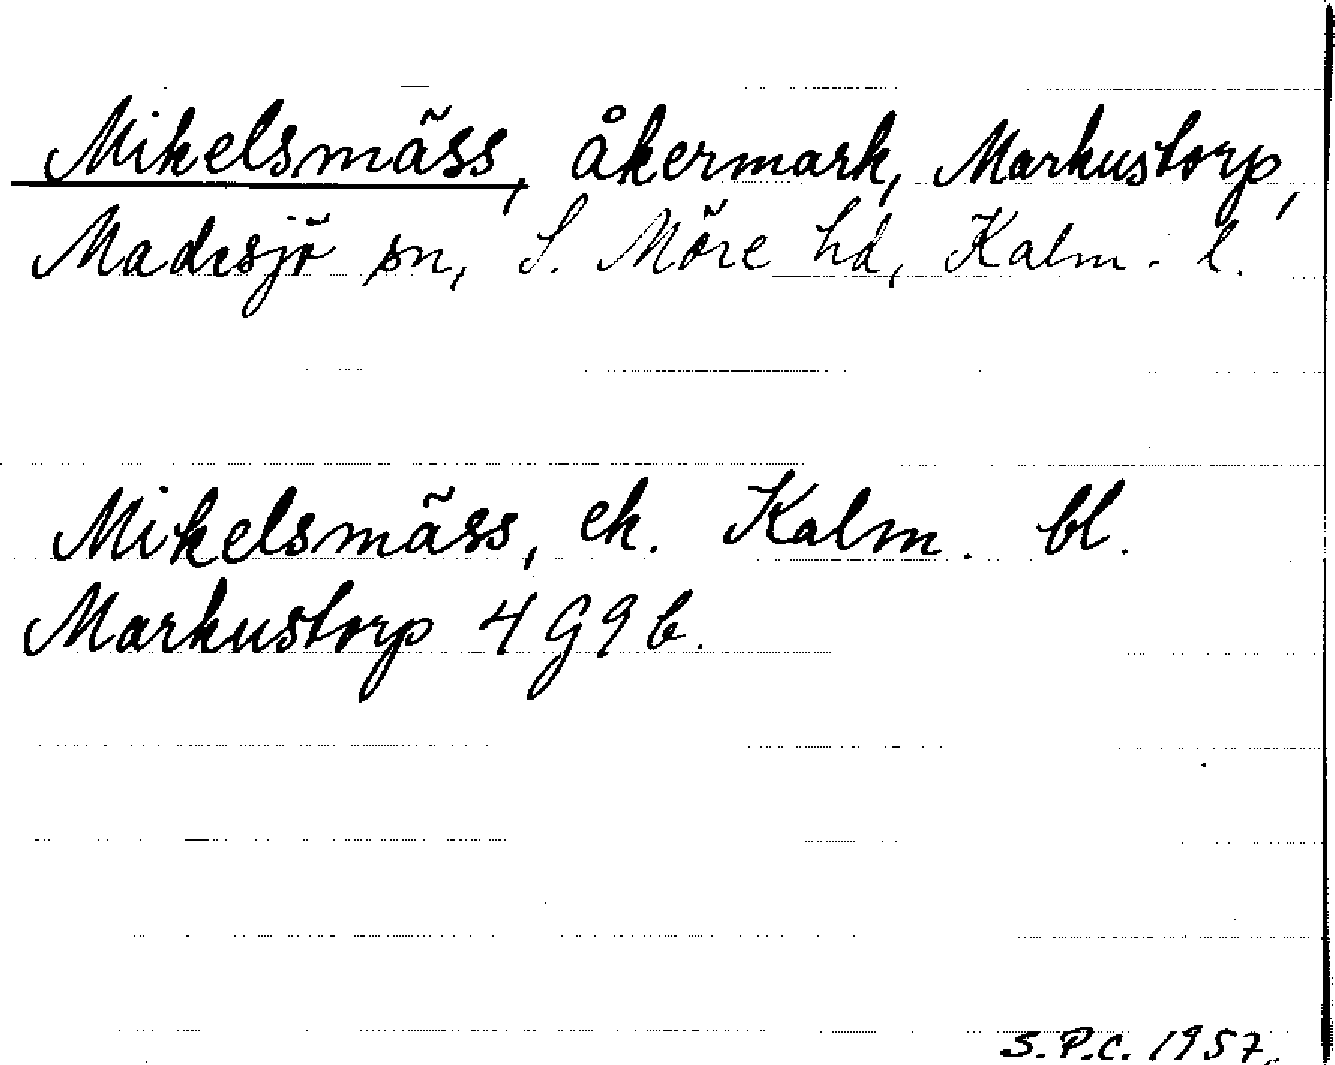 Mikelsmäss, åkermark, Markustorp,
Madesjö sn, S. Möre hd, Kalm. l.
Mikelsmäss, ek. Kalm. bl.
Markustorp 4G9b.
S.P.C. 1957.